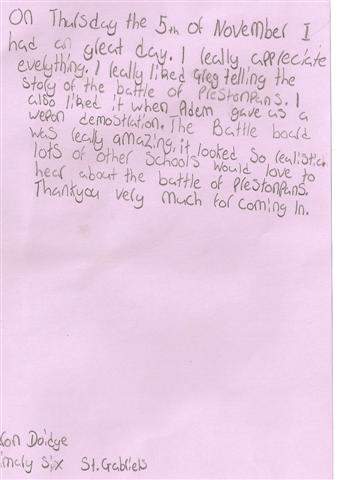 On Thursday the 5th of November I
had an great day. I really appreciate
everything. I really liked Greg telling the
story of the battle of Prestonpans. I
also liked it when Adem gave us a
wepon demostration. The Battle board
was really amazing, it looked so realistic.
lots of other schools would love to
hear about the battle of Prestonpans.
Thankyou very much for coming in.
Doidge
Six St. Gabriels